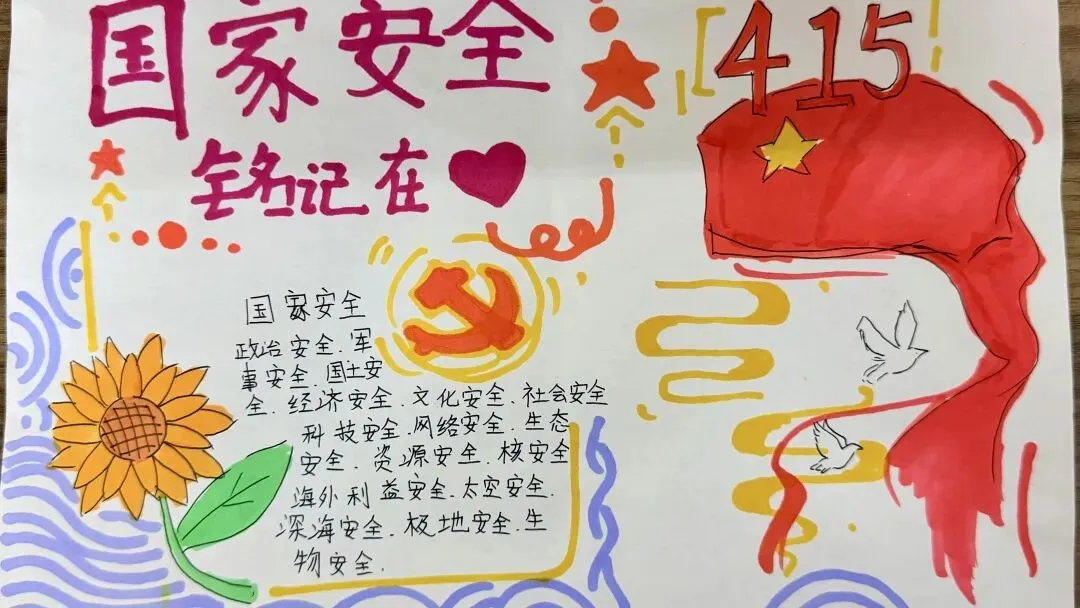 国家安全
铭记在
415
国家安全
政治安全.军
事安全.国土安
全.经济安全.文化安全.社会安全
科技安全.网络安全.生态
安全.资源安全.核安全
海外利益安全.太空安全.
深海安全.极地安全.生
物安全.